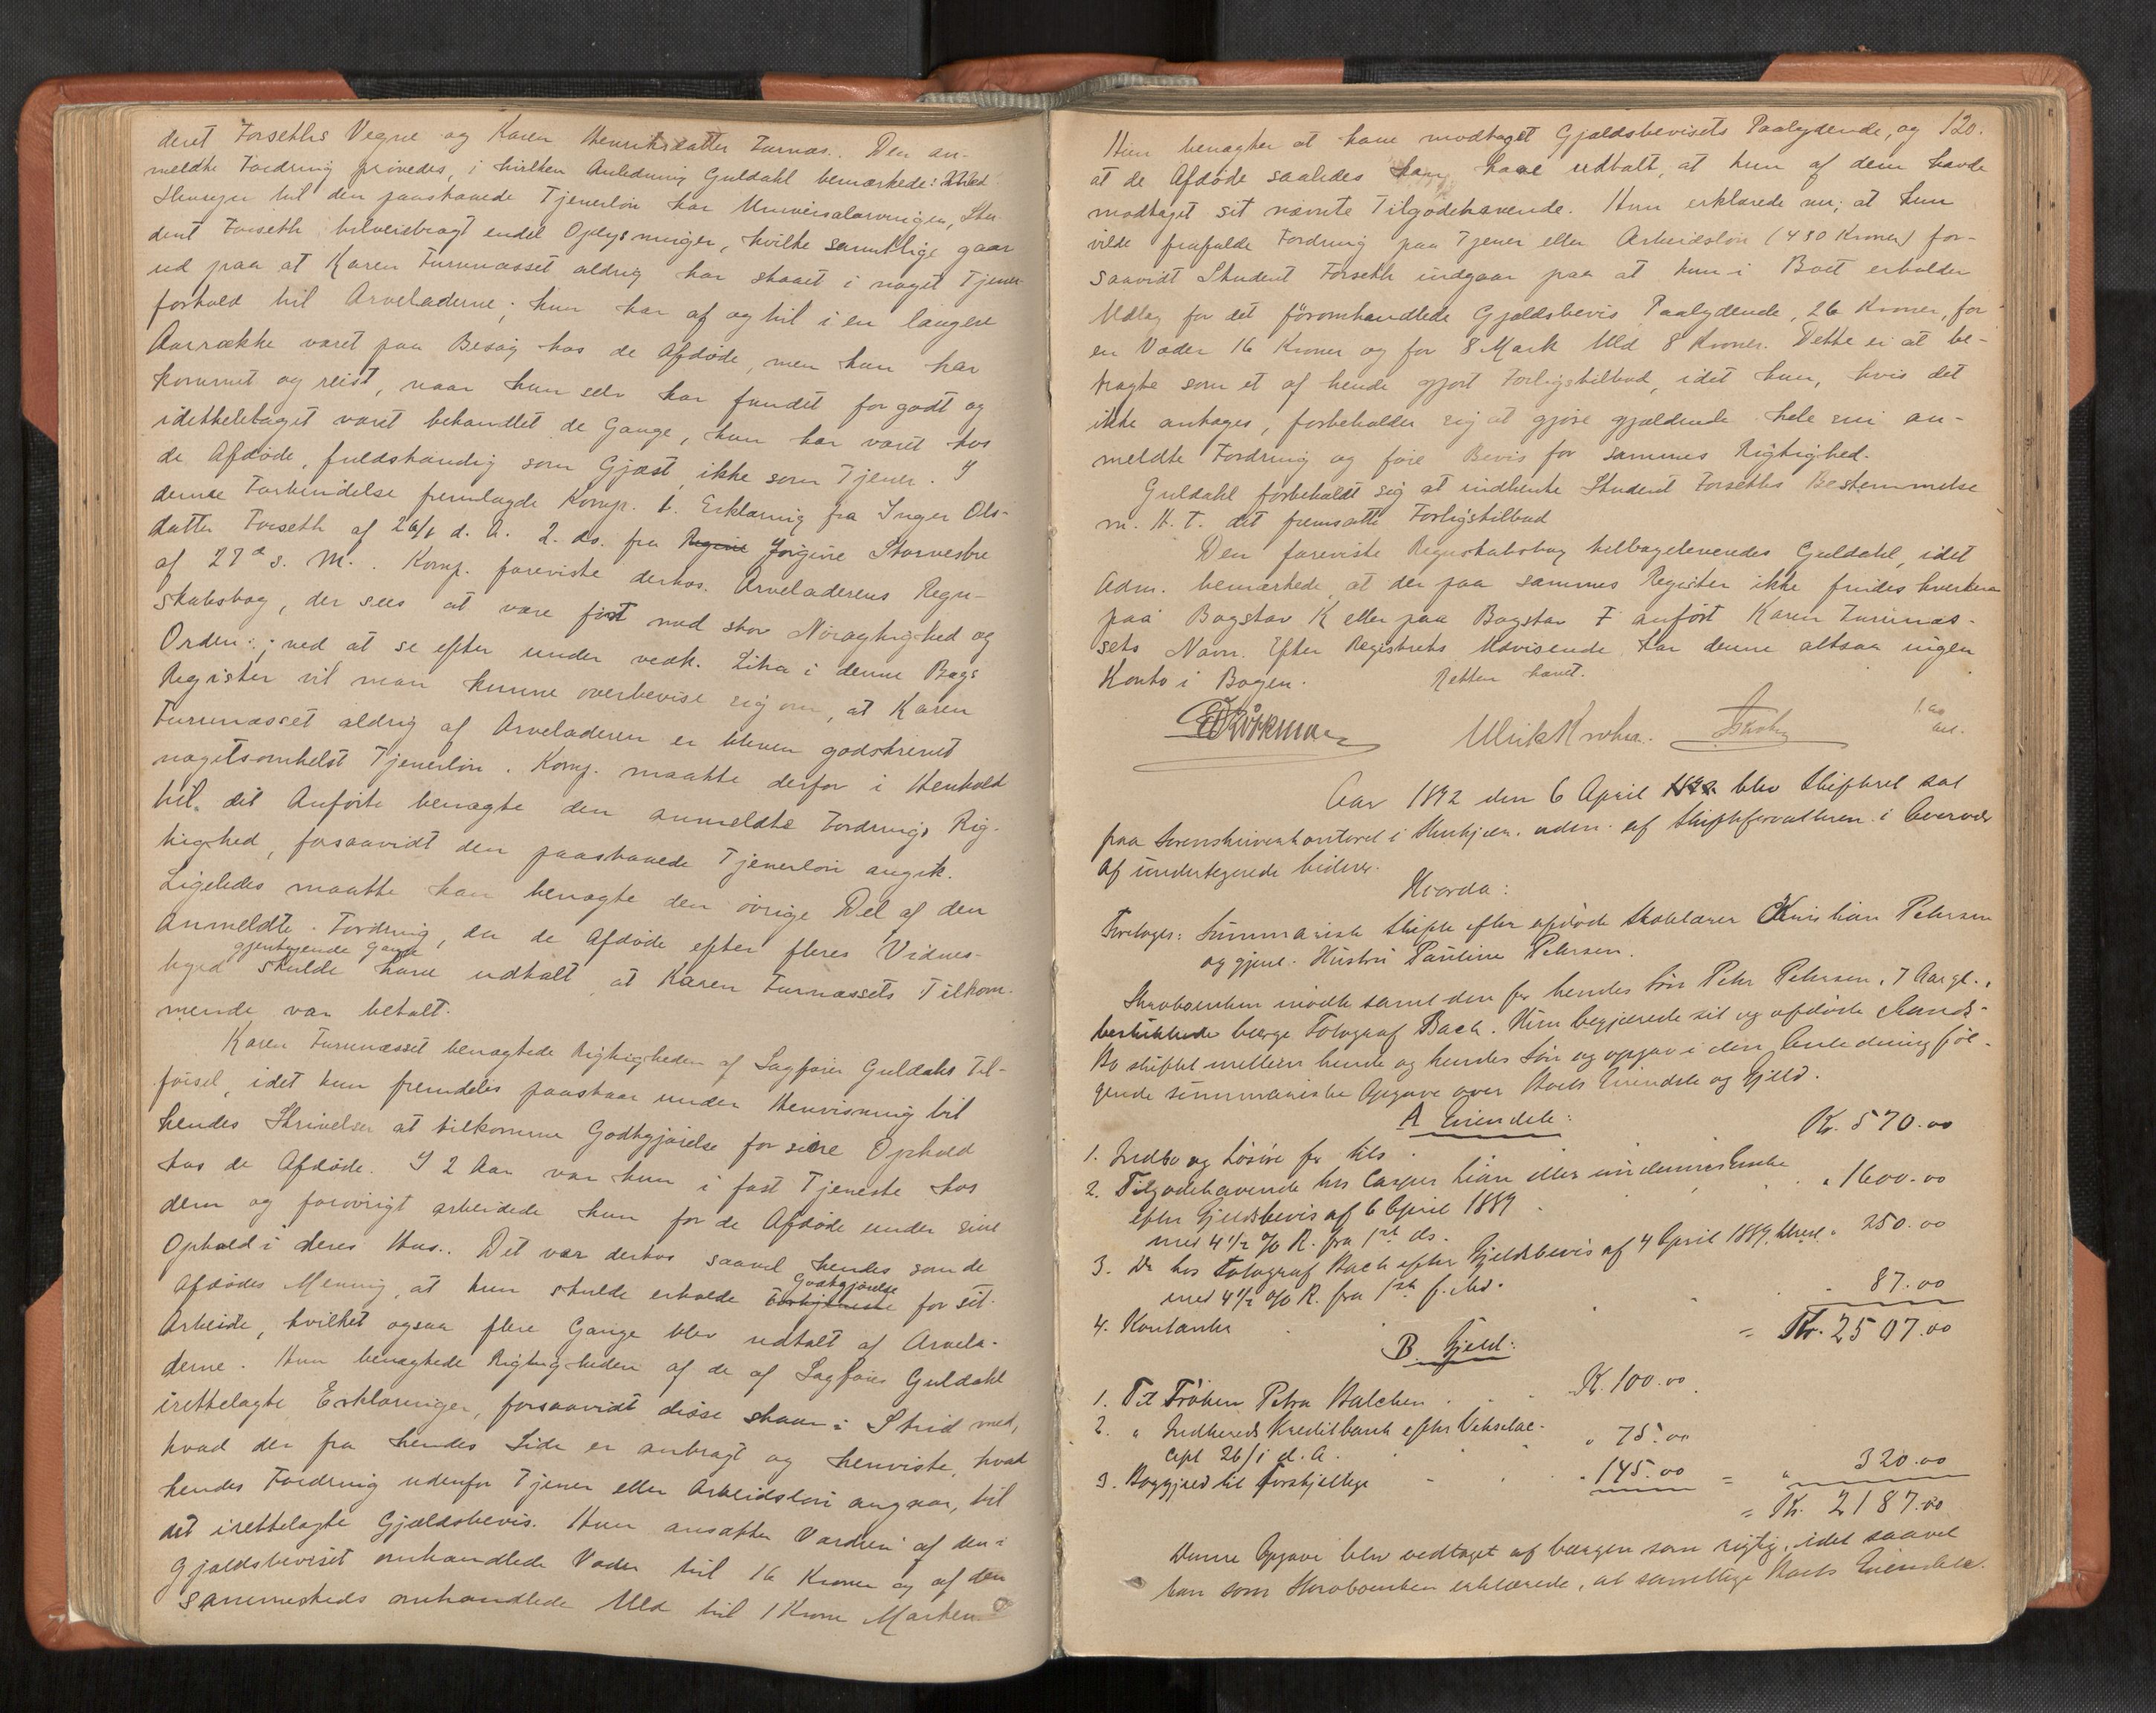 dent Forseths Vegne og Karen Henriksdatter Furnæs. Den an-
meldte Fordring prøvedes, i hvilken Anledning Guldahl bemærkede: Med
Hensyn til den paastaaede Tjenerløn har Universalarvingen, Stu-
dent Forseth tilveiebragt endel Oplysninger, hvilke samtlige gaar
ud paa at Karen Furunæsset aldrig har staaet i noget Tjener-
forhold til Arveladerne; hun har af og til i en længere
Aarrække været paa Besøg hos de Afdøde, men hun har
kommet og reist, naar hun selv har fundet for godt og
idetheletaget været behandlet de Gange, hun har været hos
de Afdøde, fuldstændig som Gjæst, ikke som Tjener. I
denne Forbindelse fremlagde Komp. 1. Erklæring fra Inger Ols-
datter Forseth af 26/1 d. A. 2. do. fra Regine Jørgine Storvestre
af 27d s. M. . Komp. foreviste derhos Arveladerens Regn-
skabsbog, der sees at være ført med stor Nøiagtighed og
Orden; ved at se efter under vedk. Litra i denne Bogs
Register vil man kunne overbevise sig om, at Karen
Furunæsset aldrig af Arveladeren er bleven godskrevet
nogetsomhelst Tjenerløn. Komp. maatte derfor i Henhold
til det Anførte benægte den anmeldte Fordrings Rig-
tighed, forsaavidt den paastaaede Tjenerløn angik.
Ligeledes maatte han benægte den øvrige Del af den
anmeldte Fordring, da de Afdøde efter fleres Vidnes-
gjentagende Gange
byrd skulde have udtalt, at Karen Furnæssets Tilkom-
mende var betalt.
Karen Furunæsset benægtede Rigtigheden af Sagfører Guldahls Til-
førsel, idet hun fremdeles paastaar under Henvisning til
hendes Skrivelser at tilkomme Godtgjørelse for sine Ophold
hos de Afdøde. I 2 Aar var hun i fast Tjeneste hos
dem og forøvrigt arbeidede hun for de Afdøde under sine
Ophold i deres Hus. Det var derhos saavel hendes som de
Afdødes Mening, at hun skulde erholde Godtgjørelse for sit
Arbeide, hvilket ogsaa flere Gange blev udtalt af Arvela-
derne. Hun benægtede Rigtigheden af de af Sagfører Guldahl
irettelagte Erklæringer, forsaavidt disse staar i Strid med,
hvad der fra hendes Side er anbragt og henviste, hvad
hendes Fordring udenfor Tjener eller Arbeidsløn angaar, til
det irettelagte Gjældsbevis. Hun ansatte Værdien af den i
Gjældsbeviset omhandlede Vader til 16 Kroner og af den
sammesteds omhandlede Uld til 1 Krone Marken
120.
Hun benægter at have modtaget Gjældsbevisets Paalydende, og
at de Afdøde saaledes have udtalt, at hun af dem havde
modtaget sit nævnte Tilgodehavende. Hun erklærede nu, at hun
vilde frafalde Fordring paa Tjener eller Arbeidsløn (480 Kroner) for-
saavidt Student Forseth indgaar paa at hun i Boet erholder
Udlæg for det føromhandlede Gjældsbevis Paalydende, 26 Kroner, for
en Vader 16 Kroner og for 8 Mark Uld 8 Kroner. Dette er at be-
tragte som et af hende gjort Forligstilbud, idet hun, hvis det
ikke antages, forbeholder sig at gjøre gjældende hele sin an-
meldte Fordring og føre Bevis for sammes Rigtighed.
Guldahl forbeholdt sig at indhente Student Forseths Bestemmelse
m. H. T. det fremsatte Forligstilbud
Den foreviste Regnskabsbog tilbageleveredes Guldahl, idet
Adm. bemærkede, at der paa sammes Register ikke findes hverken
paa Bogstav K eller paa Bogstav F anført Karen Furunæs-
sets Navn. Efter Registrets Udvisende har denne altsaa ingen
Konto i Bogen. Retten hævet.
Ulrik
Aar 1892 den 6 April blev Skifteret sat
paa Sorenskriverkontoret i Stenkjær. adm. af Skifteforvalteren i Overvær
af undertegnede vidner.
Hvorda:
Foretoges: Summarisk Skifte efter afdøde Skolelærer Kristian Petersen
og gjenl. Hustru Pauline Petersen.
Skrabenken mødte samt den for hendes Søn Petr Petersen, 7 Aar gl.,
beskikkede værge Fotograf Bach. Hun begjærede sit og afdøde Mands
Bo skiftet mellem hende og hendes Søn og opgav i den Anledning føl-
gende summariske Opgave over Boets Eiendele og Gjeld.
A Eiendele:
1. Indbo og Løsøre for tils. Kr. 570.00
2. Tilgodehavende hos Casper
efter Gjeldsbevis af 6 April 1889 " 1600.00
med 4 1/2 % R. fra 1ste ds.
3. Do hos Fotograf Bach efter Gjeldsbevis af 4 April 1889 " 250.00
med 4 1/2 % R. fra 1ste f. Md.
4. Kontanter 87.00
= Kr. 2507.00
B Gjeld:
1. Til Frøken Petra Balchen Kr. 100.00
2. " Indherreds Kreditbank efter Vekselac-
cept 26/1 d. A. " 75.00
3. Boggjeld til forskjellige " 145.00 = " 320.00
= Kr. 2187.00
Denne Opgave blev vedtaget af værgen som rigtig, idet saavel
han som erklærede, at samtlige Boets Eiendele